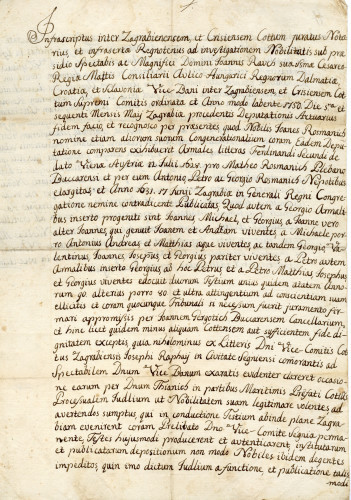 Infrascriptus inter Zagrabiensem, et Crisiensem Cottum juratus Nota-
rius, et infraserta Regnotenus ad investigationem Nobilitatis sub præ-
sidio Spectabilis ac Magnifici Domini Joannis Rauch suæ Cesareo
Regiæ Mattis Consiliarii Aulico Hungarici Regnorum Dalmatiæ,
Croatiæ, et Sclavoniæ Vice Bani inter Zagrabiensem, et Crisiensem Cot-
tum Supremi Comitis ordinata et Anno modo labente 1750. Die et
sequente Mensis May Zagrabiæ procedentis Deputationis Actuarius
fidem facio, et recognosco per præsentes quod Nobilis Joanes Rosmanich
nomine etiam aliorum suorum Congenerationalium coram eadem Depu-
tatione comparens exhibuerit Armales litteras Ferdinandi Secundi de
dato Viennæ Austriæ 12 Julii 1629. pro Matheo Rosmanich Plebano
Buccarensi, et per eum Antonio, Petro ac Georgio Rosmanich Nepotibus
elargitas, et Anno 1631. 17 Junii Zagrabiæ in Generali Regni Congre-
gatione nemine contradicente Publicatas. Quod autem a Georgio Armali-
bus inserto progeniti sint Joannes, Michael, et Georgius, a Joanne vero
alter Joannes, qui genuit Joannem et Andream viventes, a Michaele por-
ro Antonius Andreas et Matthias aque viventes, ac tandem Georgio Va-
lentinus, Joannes Josephus et Georgius pariter viventes, a Petro autem
Armalibus inserto Georgius ab hoc Petrus, et a Petro Matthias Josephus
et Georgius viventes edocuit duorum Testium unius quidem ætatem Anno-
rum 90 alterius porro 80 et ultra attingentium ad conscientiam suam
elicitis et coram quocunque Tribunali si necesum fuerit juramento fir-
mari appromissis per Joannem Gergotich Buccarensem Cancellarium,
et hinc licet quidem minus aliquam Cottensem aut sufficientem fide di-
gnitatem exceptis, quia nihilominus ex Litteris Dni Vice-Comitis Cot-
tus Zagrabiensis Josephi Raphay in Civitate Segniensi comorantis ad
Spectabilem Dnum Vice Banum exaratis evidenter clareret occasio-
ne earum per Dnum Thianich in partibus Maritimis Præfati Cottus
Processualem Judlium ut Nobilitatem suam legitimare volentes, ad
avertendos sumptus, qui in conductione Testium abinde plane Zagra-
biam evenirent coram Prelibato Dno Vice-Comite Segniæ perma-
nente, Testes hujusmodi producerent et autenticarent, institutarum
et publicatarum depositionum non modo Nobiles ibidem degentes
impeditos quin imo dictum Judlium a functione, et publicatione talis
modi